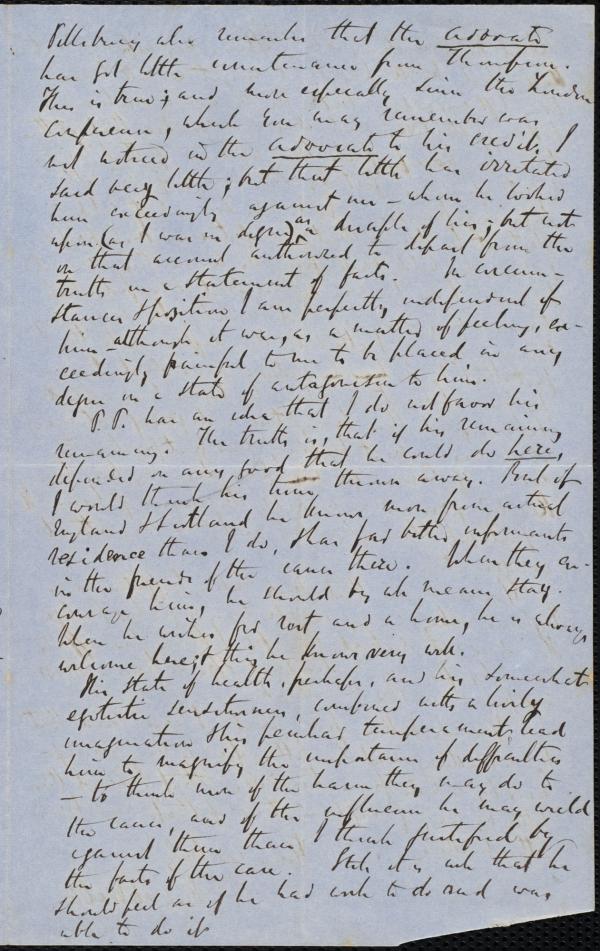 Pillsbury also remarks that the Advocate
has got little countenance from Thompson.
This is true; and more especially since the London
Conference, which you may remember was
not noticed in the Advocate to his credit. I
said very little; but that little has irritated
him exceedingly against me - whom he looked
upon (as I was in degree) as a disciple of his; but not
on that account authorized to depart from the
truth in a statement of facts. In circum-
stances & position I am perfectly independent of
him - although it was, as a matter of feeling, ex-
ceedingly painful to me to be placed in any
degree in a state of antagonism to him.
P.P. has an idea that I do not favor his
remaining. The truth is, that if his remaining
depended on any good that he could do here,
I would think his time thrown away. But of
England & Scotland he knows more from actual
residence than I do, & has far better informants
in the friends of the cause there. When they en-
courage him, he should by all means stay.
When he wishes for rest and a home, he is always
welcome here; & this he knows very well.
His state of health, perhaps, and his somewhat
egotistic sensitiveness, combined with a lively
imagination & his peculiar temperament lead
him to magnify the importance of difficulties
- to think more of the harm they may do to
the cause, and of the influence he may wield
against them than I think justified by
the facts of the case. Still it is well that he
should feel as if he had work to do and was
able to do it